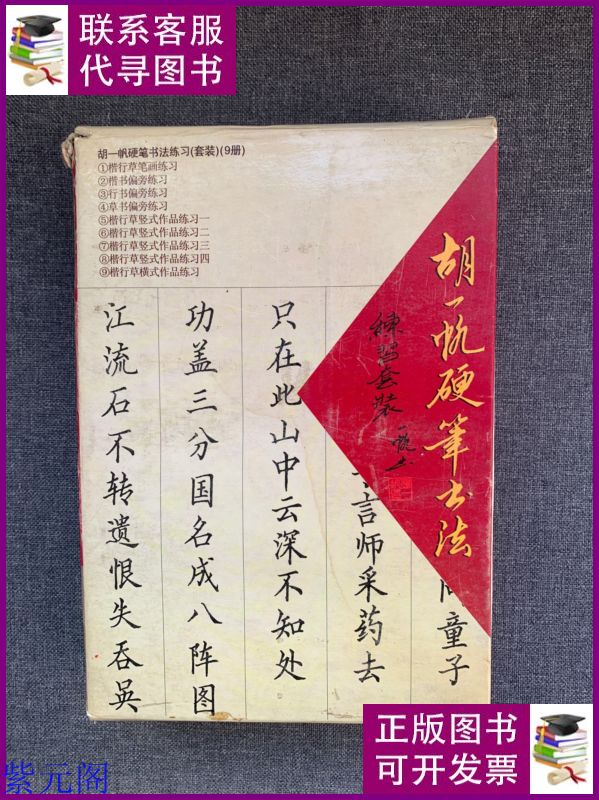 联系客服
代寻图书
胡一帆硬笔书法练习(套装)(9册)
①楷行草笔画练习
②楷书偏旁练习
③行书偏旁练习
④草书偏旁练习
⑤楷行草竖式作品练习一
⑥楷行草竖式作品练习二
⑦楷行草竖式作品练习三
⑧楷行草竖式作品练习四
⑨楷行草横式作品练习
胡一帆硬笔书法
練習套裝
一帆书
童子
言师采药去
只在此山中云深不知处
功盖三分国名成八阵图
江流石不转遗恨失吞吴
正版图书
可开发票
紫元阁